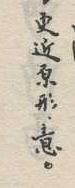 更近原形之意。